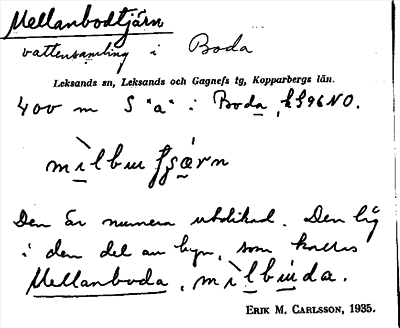 Mellanbodtjärn
vattensamling i Boda
Leksands sn, Leksands och Gagnefs tg, Kopparbergs län.
400 m S "a" i Boda, k 596 NO.
mìlbu
Den är numera utdikad. Den låg
i den del av byn, som kallas
Mellanboda, mìlbúda.
ERIK M. CARLSSON, 1935.